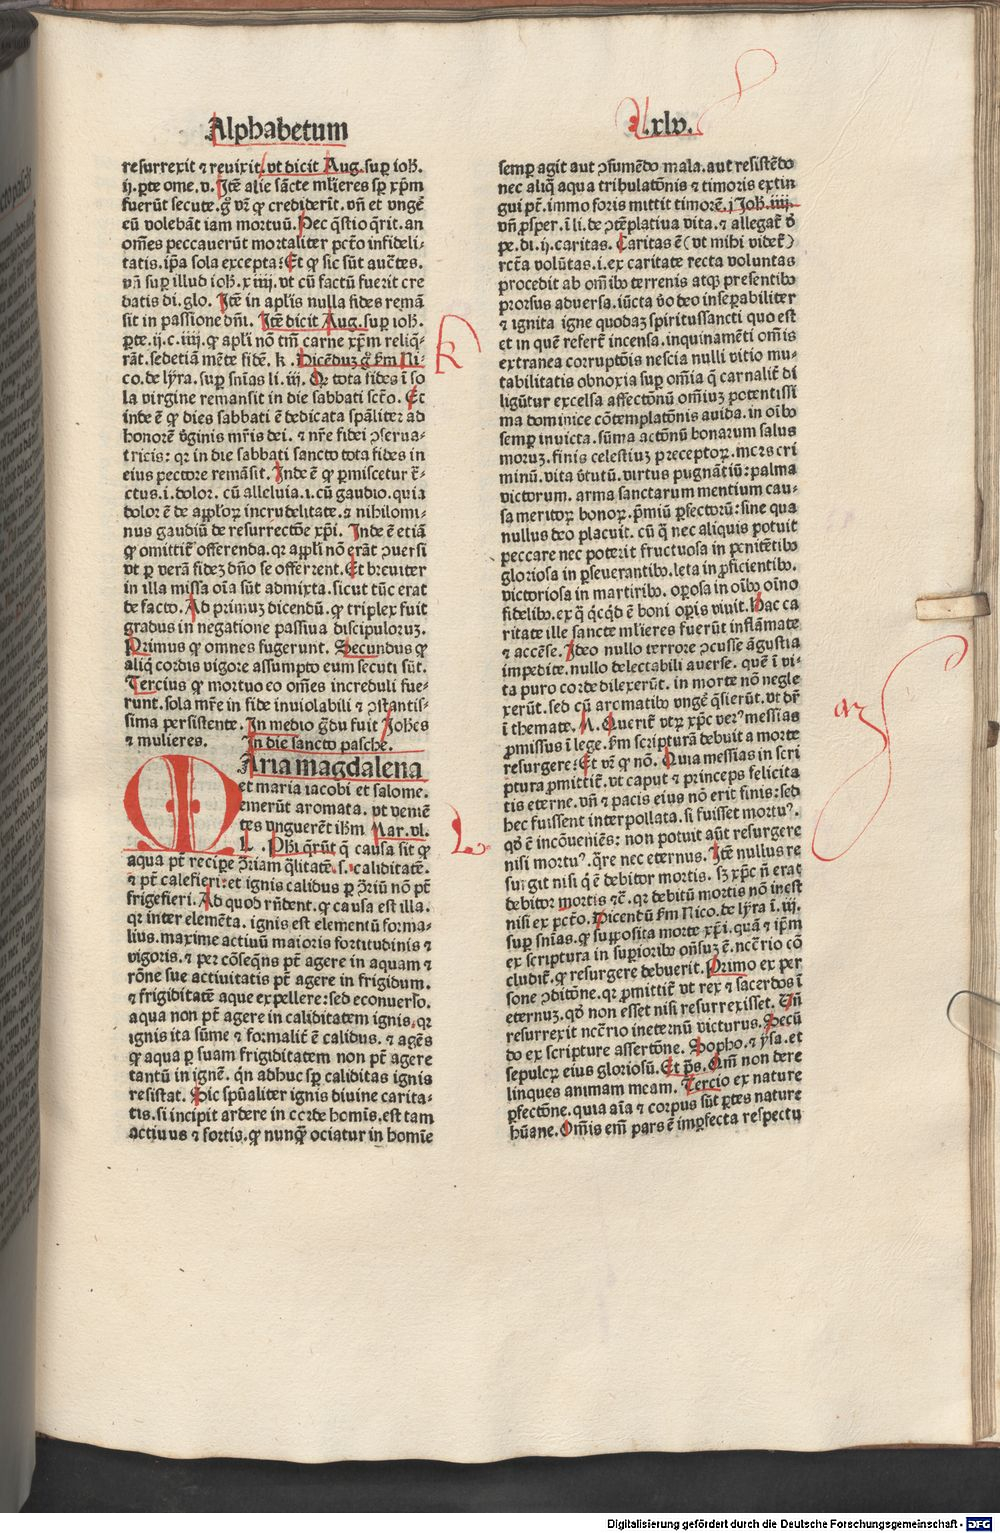 Alphabetum
.xlv.
resurrexit ⁊ reuixit. vt dicit Aug. sup̱ ioh̄.
ij. ꝑte ome. v. Itē alie sācte ml̄ieres sꝑ xp̄m
fuerūt secute. gͦ vr̄ ꝙ crediderit. vn̄ et vngē
cū volebāt iam mortuū. Nec q̄stio q̄rit. an
om̄es peccauerūt mortaliter pctō infideli⸗
tatis. ip̄a sola excepta: Et ꝙ sic sūt auctes.
vn̄ suꝑ illud ioh̄. xiiij. vt cū factū fuerit cre
datis di. glo. Itē in apl̄is nulla fides remā
sit in passione dn̄i. Itē dicit Aug. suꝑ ioh̄.
ꝑte. ij. c. iiij. ꝙ apl̄i nō tm̄ carne xp̄m reliq̄⸗
rāt. sed etiā mēte fidē. k. Dicēduz gͦ s̄m Ni⸗
co. de lyra. suꝑ sn̄ias li. iij. Qꝛ tota fides ī so
la virgine remansit in die sabbati sctō. Et
inde ē ꝙ dies sabbati ē dedicata spāliter ad
honorē v̄ginis mr̄is dei. ⁊ nr̄e fidei ꝯserua⸗
tricis: qꝛ in die sabbati sancto tota fides in
eius pectore remāsit. Inde ē ꝙ ꝑmiscetur
ctus. i. dolor. cū alleluia. i. cū gaudio. quia
dolor ē de apl̄oꝝ incrudelitate. ⁊ nihilomi⸗
nus gaudiū de resurrectōe xp̄i. Inde ē etiā
ꝙ omittit̄ offerenda. qꝛ apl̄i nō erāt ꝯuersi
vt ꝑ verā fidez dn̄o se offerrent. Et breuiter
in illa missa oīa sūt admixta. sicut tūc erat
de facto. Ad primuz dicendū. ꝙ triplex fuit
gradus in negatione passiua discipuloruz.
Primus ꝙ omnes fugerunt. Secundus ꝙ
aliq̄ cordis vigore assumpto eum secuti sūt.
Tercius ꝙ mortuo eo om̄es increduli fue⸗
runt. sola mr̄e in fide inuiolabili ⁊ ꝯstantis⸗
sima persistente. In medio gͣdu fuit Ioh̄es
⁊ mulieres. In die sancto pasche.
MAria magdalena
et maria iacobi et salome.
emerūt aromata. vt veniē
tes vnguerēt ih̄m Mar. vl.
L. Ph̄i q̄rūt q̄ causa sit ꝙ
aqua pt̄ reciꝑe ꝯ̄riam q̄litatē. s. caliditatē.
⁊ pt̄ calefieri: et ignis calidus ꝑ ꝯ̄riū nō pt̄
frigefieri. Ad quod rn̄dent. ꝙ causa est illa.
qꝛ inter elemēta. ignis est elementū forma⸗
lius. maxime actiuū maioris fortitudinis ⁊
vigoris. ⁊ per cōseq̄ns pt̄ agere in aquam ⁊
rōne sue actiuitatis pt̄ agere in frigidum.
⁊ frigiditatē aque expellere: sed econuerso.
aqua non pt̄ agere in caliditatem ignis. qꝛ
ignis ita sūme ⁊ formalit̄ ē calidus. ⁊ agēs
ꝙ aqua ꝑ suam frigiditatem non pt̄ agere
tantū in ignē. qn̄ adhuc sꝑ caliditas ignis
resistat. Sic spūaliter ignis diuine carita⸗
tis. si incipit ardere in corde homīs. est tam
actiuus ⁊ fortis. ꝙ nunq̄ ociatur in homīe
k
L
semꝑ agit aut ꝯsumēdo mala. aut resistēdo
nec aliq̄ aqua tribulatōnis ⁊ timoris extin
gui pt̄. immo foris mittit timorē. j Ioh̄. iiij.
vn̄ ꝓsper. ī li. de ꝯtēplatiua vita. ⁊ allegat̄ d̄
pe. di. ij. caritas. Caritas ē (vt mihi videt̄)
rctā volūtas. i. ex caritate recta voluntas
procedit ab om̄ibꝰ terrenis atqꝫ presentibꝰ
prorsus aduersa. iūcta v̄o deo inseꝑabiliter
⁊ ignita igne quodaz spiritussancti quo est
et in quē refert̄ incensa. inquinamēti om̄is
extranea corruptōis nescia nulli vitio mu⸗
tabilitatis obnoxia suꝑ om̄ia q̄ carnalit̄ di
ligūtur excelsa affectōnū om̄iuz potentissi
ma dominice cōtemplatōnis auida. in oībꝰ
semꝑ inuicta. sūma actōnū bonarum salus
moruz. finis celestiuz preceptoꝝ. mors cri
minū. vita v̄tutū. virtus pugnātiū: palma
victorum. arma sanctarum mentium cau⸗
sa meritoꝝ bonoꝝ. p̄miū ꝑfectorū: sine qua
nullus deo placuit. cū q̄ nec aliquis potuit
peccare nec poterit fructuosa in penitētibꝰ
gloriosa in ꝑseuerantibꝰ. leta in ꝓficientibꝰ.
victoriosa in martiribꝰ. oꝑosa in oībꝰ oīno
fidelibꝰ. ex q̄ qͥcqͥd ē boni oꝑis viuit. Hac ca
ritate ille sancte ml̄ieres fuerūt inflāmate
⁊ accēse. Ideo nullo terrore ꝯcusse āgustia
impedite. nullo delectabili auerse. quē ī vi⸗
ta puro corde dilexerūt. in morte nō negle
xerūt. sed cū aromatibꝰ vngē q̄sierūt. vt dr̄
ī themate. M. Querit̄ vtꝝ xp̄c verꝰ messias
ꝓmissus ī lege. s̄m scripturā debuit a morte
resurgere: Et vr̄ ꝙ nō. Quia messias in scri
ptura ꝓmittit̄. vt caput ⁊ princeps felicita
tis eterne. vn̄ ⁊ pacis eius nō erit finis: sed
hec fuissent interpollata. si fuisset mortuꝰ.
qd̄ ē incōueniēs: non potuit aūt resurgere
nisi mortuꝰ. q̄re nec eternus. Itē nullus re
surgit nisi qͥ ē debitor mortis. sꝫ xp̄c n̄ erat
debitor mortis ⁊c̄. qꝛ debitū mortis nō inest
nisi ex pctō. Dicentū s̄m Nico. de lyra ī. iij.
suꝑ sn̄ias. ꝙ supposita morte xp̄i. quā ⁊ ip̄m
ex scriptura in suꝑioribꝰ on̄suꝫ ē. nc̄c̄rio cō
cludit̄. ꝙ resurgere debuerit. Primo ex per
sone ꝯditōne. qꝛ ꝓmittit̄ vt rex ⁊ sacerdos ī
eternuꝫ. qd̄ non esset nisi resurrexisset. Vn̄
resurrexit nc̄c̄rio in eternū victurus. Secū
do ex scripture assertōne. Sopho. ⁊ ysa. et
sepulcꝝ eius gloriosū. Et p̄s. Qm̄ non dere
linques animam meam. Tercio ex nature
ꝑfectōne. quia aīa ⁊ corpus sūt ꝑtes nature
hūane. Om̄is em̄ pars ē imꝑfecta respectu
Digitalisierung gefördert durch die Deutsche Forschungsgemeinschaft - DFG